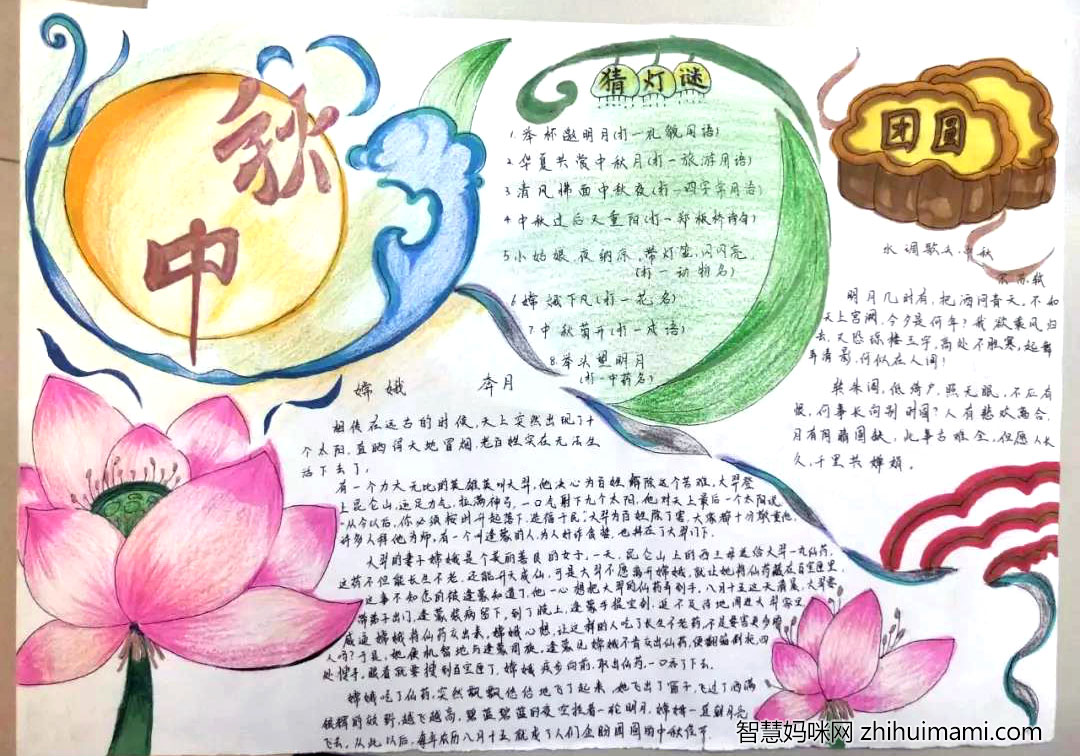 中秋
猜灯谜
1.举杯邀明月(打一礼貌用语)
2.华夏共赏中秋月(打一旅游用语)
3.清风拂面中秋夜(打一四字常用语)
4.中秋过后又重阳(打一郑板桥诗句)
5.小姑娘,夜纳凉,带灯笼,闪闪亮
(打一动物名)
6.嫦娥下凡(打一花名)
7.中秋菊开(打一成语)
8.举头望明月
(打一中药名)
团圆
水调歌头·中秋
宋 苏轼
明月几时有,把酒问青天,不知
天上宫阙,今夕是何年?我欲乘风归
去,又恐琼楼玉宇,高处不胜寒,起舞
弄清影,何似在人间!
转朱阁,低绮户,照无眠,不应有
恨,何事长向别时圆?人有悲欢离合,
月有阴晴圆缺,此事古难全,但愿人长
久,千里共婵娟。
嫦娥 奔月
相传在远古的时候,天上突然出现了十
个太阳,直晒得大地冒烟,老百姓实在无法生
活下去了,
有一个力大无比的英雄英叫大羿,他决心为百姓解除这个苦难,大羿登
上昆仑山,运足力气,拉满神弓,一口气射下九个太阳,他对天上最后一个太阳说,
从今以后,你必须按时升起落下,造福于民,大羿为百姓除了害,大家都十分敬重他,
许多人拜他为师,有一个叫逢蒙的人,为人奸诈贪婪,也拜在了大羿门下.
大羿的妻子嫦娥是个美丽善良的女子,一天,昆仑山上的西王母送给大羿一丸仙药,
这药不但能长生不老,还能升天成仙,可是大羿不愿离开嫦娥,就让她将仙药藏在百宝匣里,
这事不知怎的被逢蒙知道了,他一心想把大羿的仙药弄到手,八月十五这天清晨,大羿要
带弟子出门,逢蒙装病留下,到了晚上,逢蒙手提宝剑,迫不及待地闯进大羿家里
威逼嫦娥将仙药交出来,嫦娥心想,让这样的人吃了长生不老药,不是要害更多的
人吗?于是,她便机智地与逢蒙周旋,逢蒙见嫦娥不肯交出仙药,便翻箱倒柜,四
处搜寻,眼看就要搜到百宝匣了,嫦娥疾步向前,取出仙药,一口吞了下去.
嫦娥吃了仙药,突然飘飘悠悠地飞了起来,她飞出了窗子,飞过了洒满
银辉的郊野,越飞越高,碧蓝碧蓝的夜空挂着一轮明月,嫦娥一直朝月亮
飞去,从此以后,每年农历八月十五就成了人们企盼团圆的中秋佳节
智慧妈咪网 zhihuimami.com